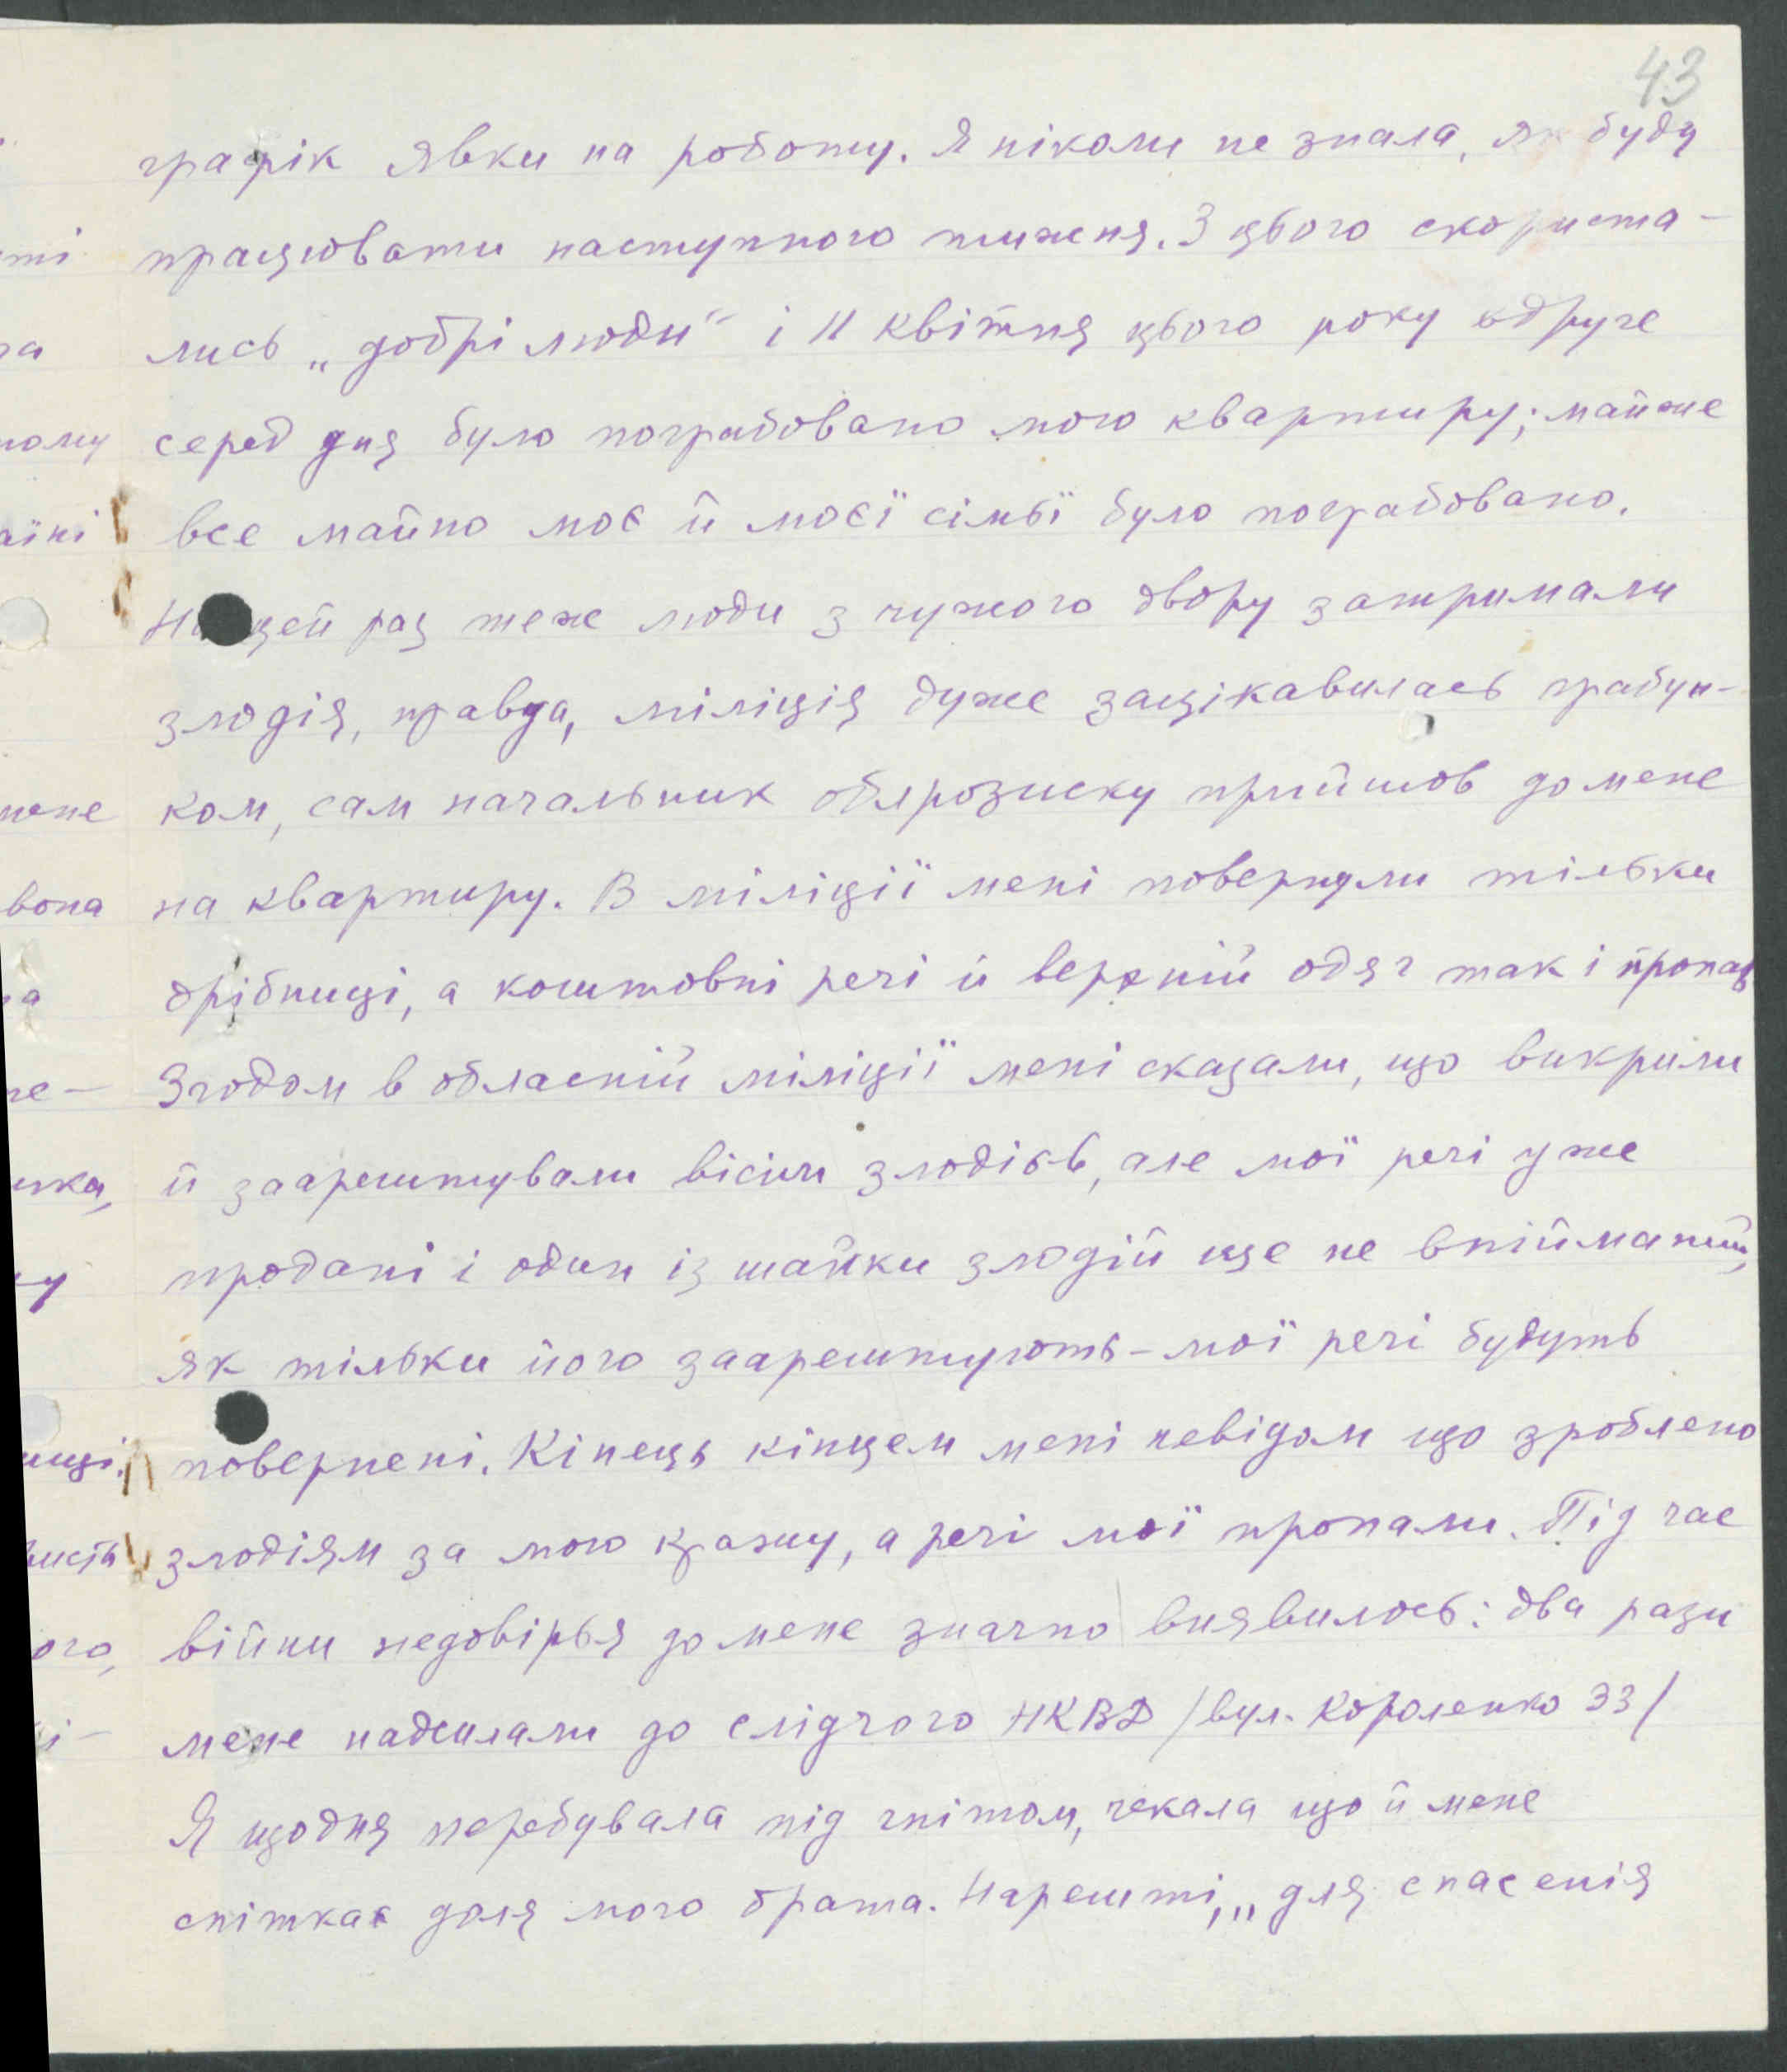 43
графік явки на роботу. Я ніколи не знала, як буду
працювати наступного тижня. З цього скориста-
лись „добрі люди" і 11 квітня цього року вдруге
серед дня було пограбовано мою квартиру; майже
все майно моє й моєї сімьї було пограбовано.
На цей раз теж люди з чужого двору затримали
злодія, правда, міліція дуже зацікавилась грабун-
ком, сам начальник облрозиску прийшов до мене
на квартиру. В міліції мені повернули тільки
дрібниці, а коштовні речі й верхній одяг так і пропав
Згодом в обласній міліції мені сказали, що викрили
й заарештували вісім злодієв, але мої речі уже
продані і один із шайки злодій ще не впійманий,
як тільки його заарештують – мої речі будуть
повернені. Кінець кінцем мені невідом що зроблено
злодіям за мою кражу, а речі мої пропали. Під час
війни недовірья до мене значно виявилось: два рази
мене надсилали до слідчого НКВД /вул. Короленко 33/
Я щодня перебувала під гнітом, чекала що й мене
спіткає доля мого брата. Нарешті, „для спасенія
ті
на
ному
аїні
мене
вона
на
че-
ика,
ну
ниці.
ого,